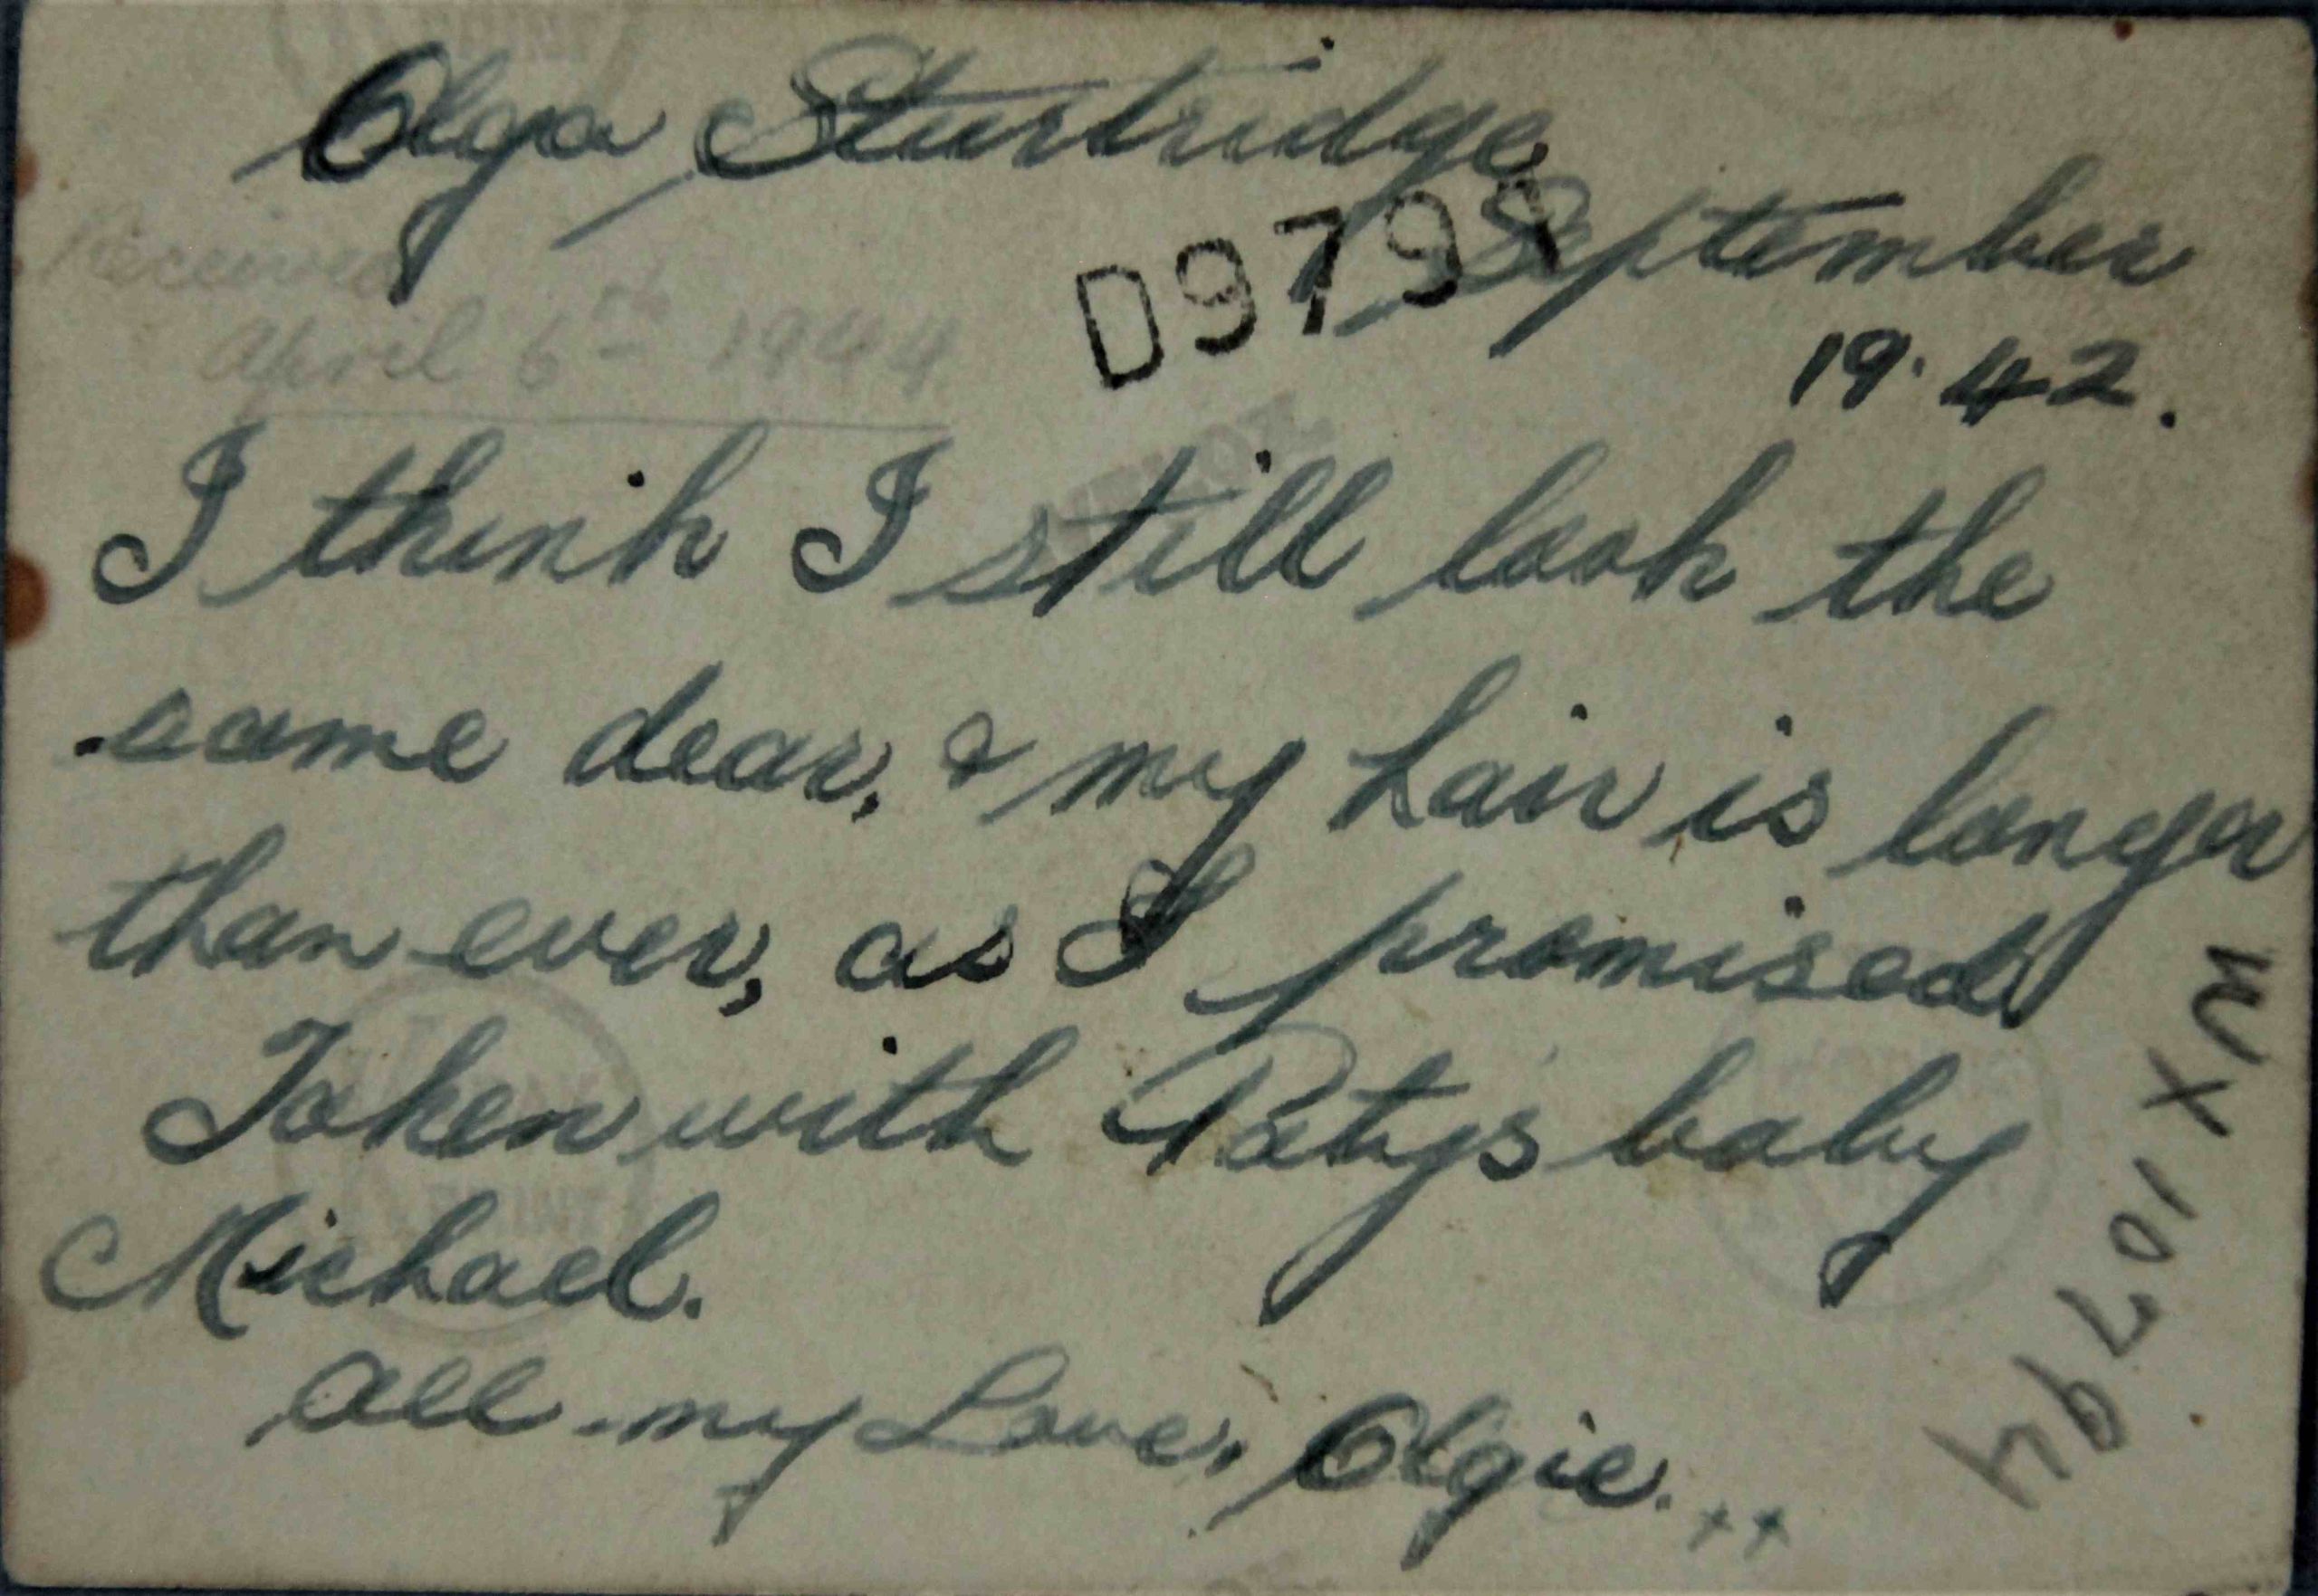 Olga Sturtridge
D9791
September
19·42.
Received
April 6th 1944
I think I still look the
same dear, & my hair is longer
than ever, as I promised.
Taken with Patty's baby
Michael.
All my Love, Olgie. xx
WX 10794